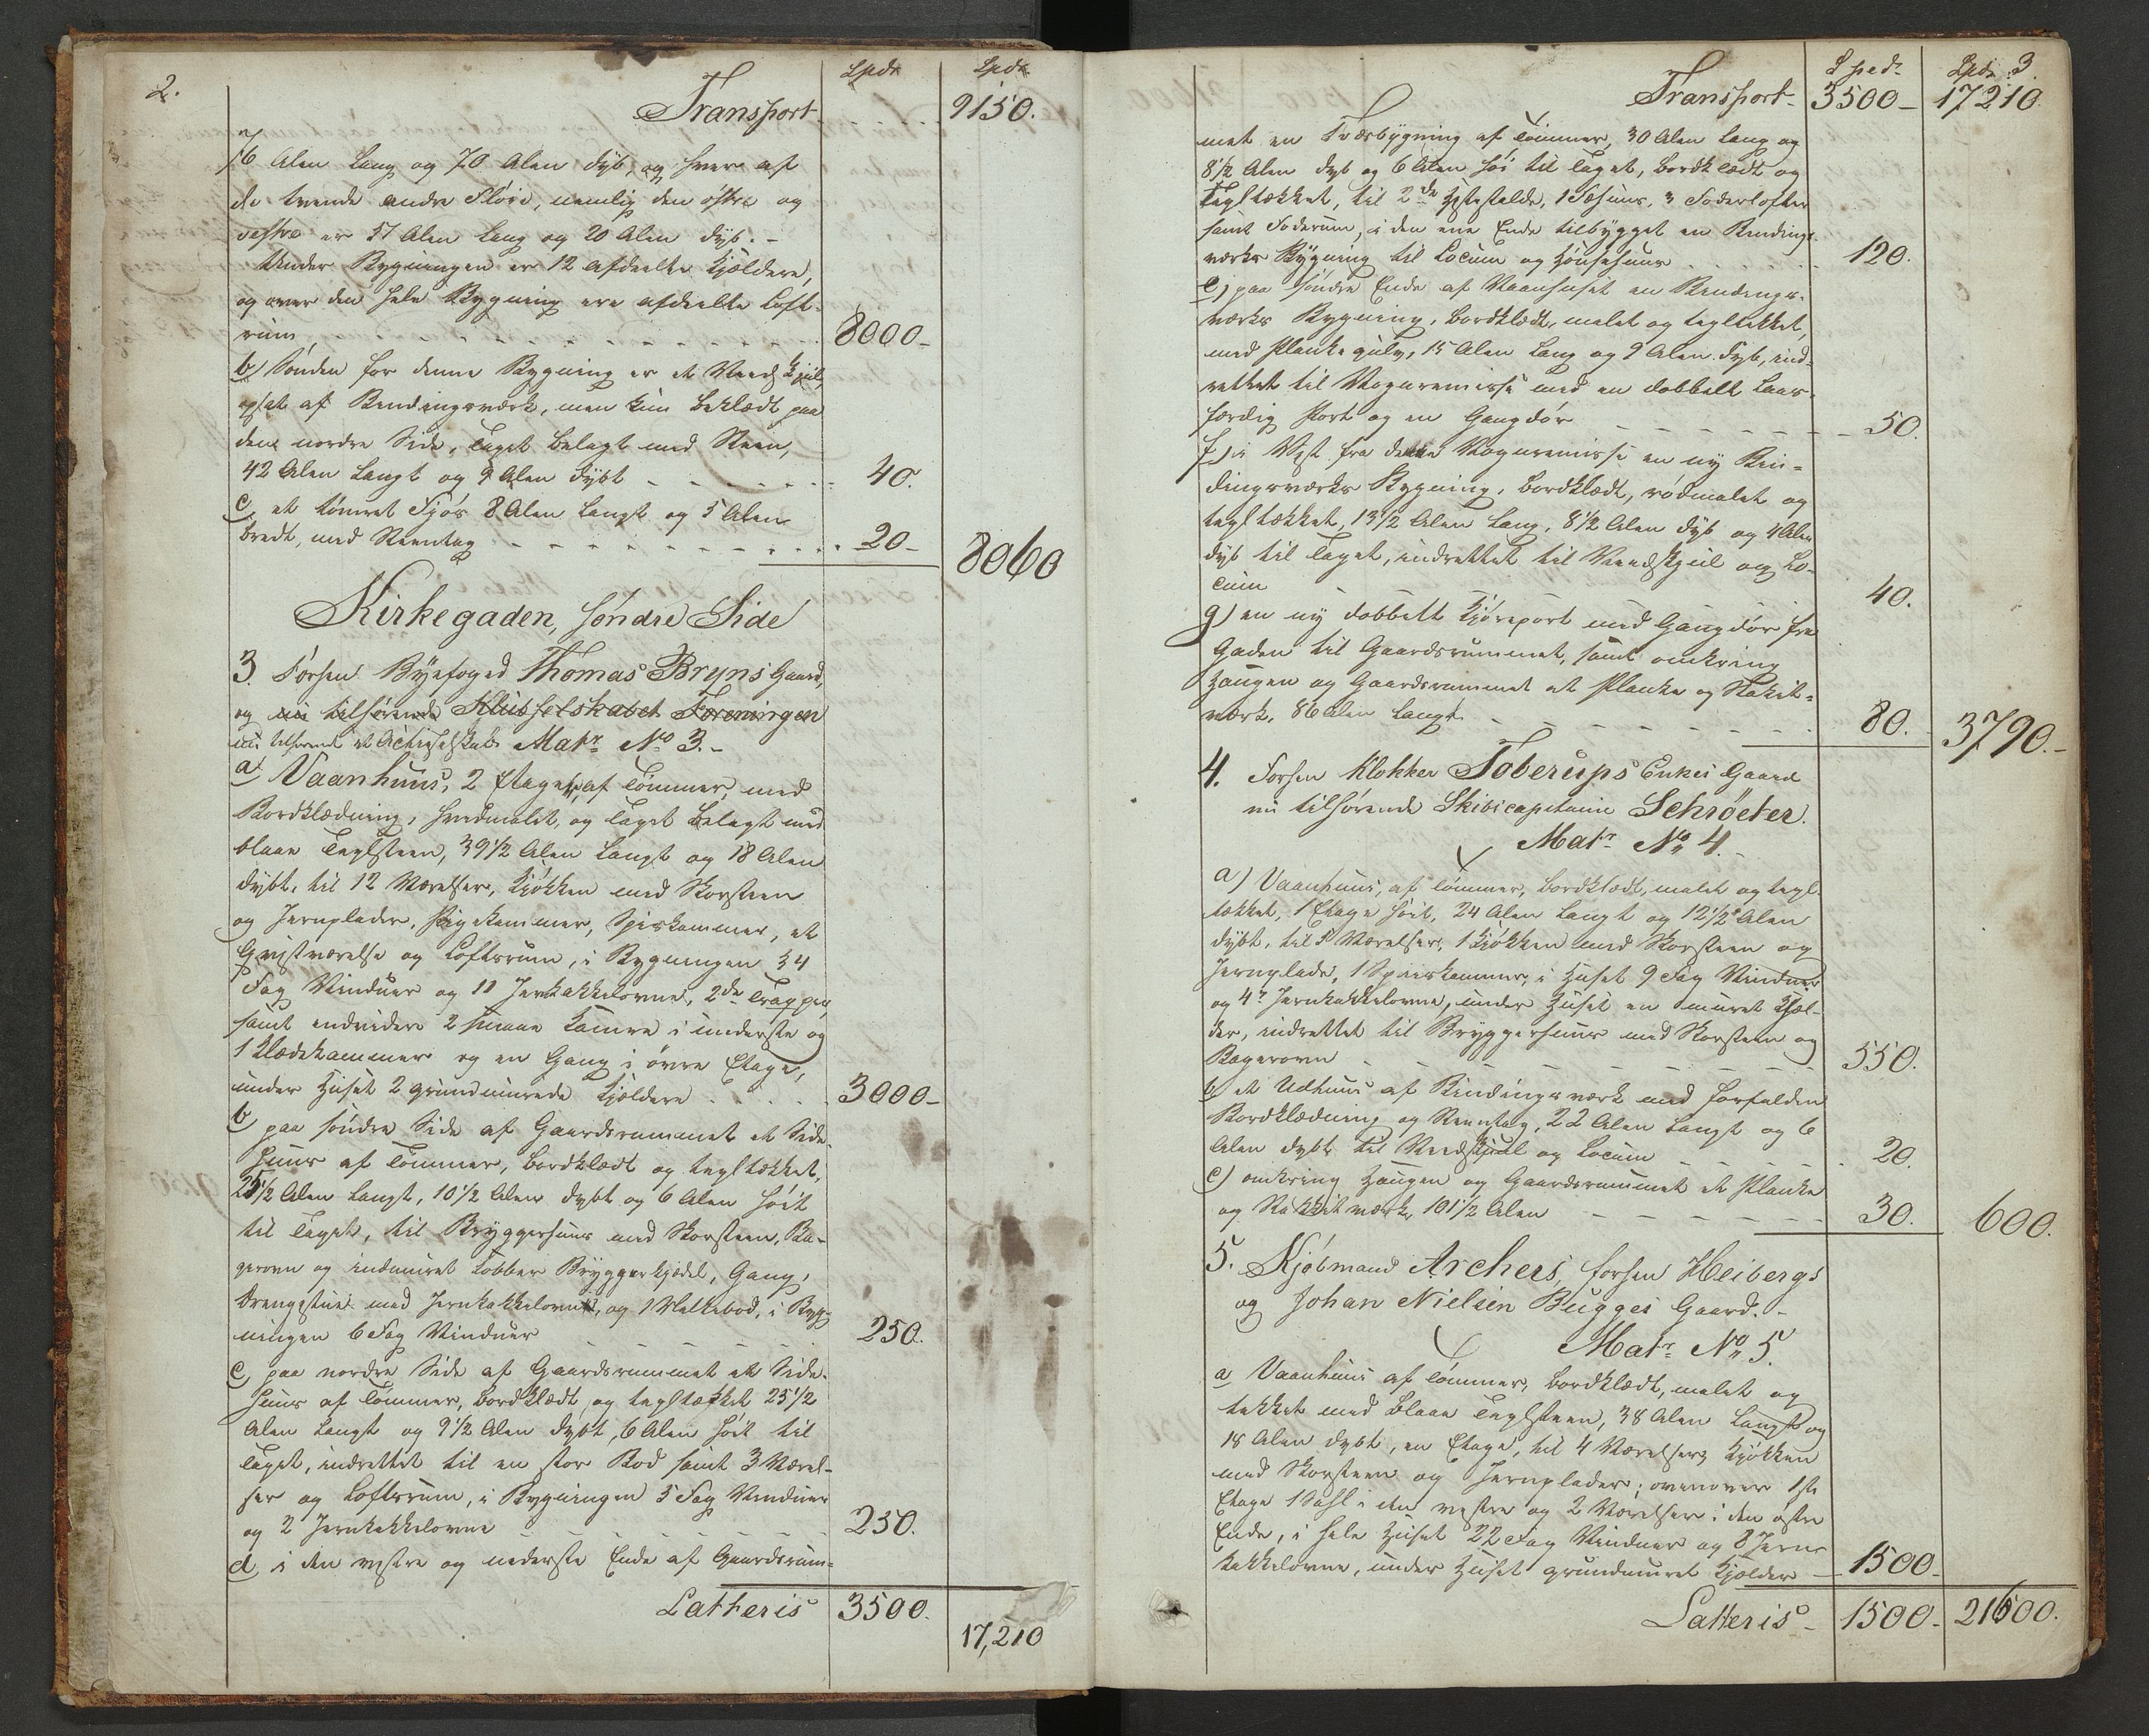 2.
Spdr Spdr
Transport 9150.
76 Alen lang og 70 Alen dyb, og hver af
de tvende andre Fløie, nemlig den østre og
vestre er 57 Alen lang og 20 Alen dyb. –
Under Bygningen er 12 afdeelte Kjældere,
og over den hele Bygning ere afdeelte Loft-
rum, 8000 –
b) Sønden for denne Bygning er et Veedskjul,
opsat af Bindingsværk, men kun beklædt paa
den nordre Side, Taget belagt med Steen,
42 Alen langt og 9 Alen dybt 40.
c, et tømret Fjøs 8 Alen langt og 5 Alen
bredt, med Steentag 20 – 8060
Kirkegaden, søndre Side
3. Forhen Byefoged Thomas Bryns Gaard,
og nu tilhørende Klubselskabet Foreningen
nu tilhørende et Actieselskab Matr No 3. –
a. Vaanhuus, 2 Etager, af Tømmer, med
Bordklædning, hvidmalet, og Taget belagt med
blaae Taglsteen, 39 1/2 Alen langt og 18 Alen
dybt, til 12 Værelser, Kjøkken med Skorsteen
og Jernplader, Pigekammer, Spiskammer, et
Qvistværelse og Loftsrum, i Bygningen 34
Fag Vinduer og 11 Jernkakkelovne, 2de Trapper,
samt endvidere 2 smaae Kamre i underste og
1 Klædekammer og en Gang i øvre Etage,
under Huset 2 grundmurede Kjældere 3000 –
b paa søndre Side af Gaardsrummet et Side-
huus af Tømmer, bordklædt og tegltækket,
25 1/2 Alen langt, 10 1/2 Alen dybt og 6 Alen høit
til Taget, til Bryggerhuus med Skorsteen, Ba-
gerovn og indmuret Kobber Bryggerkjedel, Gang,
Drengestue med Jernkakkelovn, og 1 Melkebod, i Byg-
ningen 6 Fag Vinduer 250.
c, paa nordre Side af Gaardsrummet et Side-
huus af Tømmer, bordklædt og tegltækket 25 1/2
Alen langt og 9 1/2 Alen dybt, 6 Alen høit til
Taget, indrettet til en stor Bod samt 3 Værel-
ser og Loftsrum, i Bygningen 5 Fag Vinduer
og 2 Jernkakkelovne 250.
d, i den vestre og nederste Ende af Gaardsrum-
Latteris 3500.
17,210
3.
Sped. Spdr
Transport – 3500 – 17210
met en Tværbygning af Tømmer, 30 Alen lang og
8 1/2 Alen dyb og 6 Alen høi til Taget, bordklædt og
Tegltækket, til 2de Hestestalde, 1 Fæhuus, 3 Foderlofter
samt Foderum, i den ene Ende tilbygget en Bindings-
værks Bygning til Locum og Hønsehuus 120.
e, paa søndre Ende af Vaanhuset en Bindings-
værks Bygning, bordklædt, malet og tegltækket,
med Plankegulv, 15 Alen lang og 9 Alen dyb, ind-
rettet til Vognremisse med en dobbelt Laas-
færdig Port og en Gangdør 50.
f, i Vest fra denne Vognremisse en ny Bin-
dingsværks Bygning, bordklædt, rødmalet og
tegltækket, 13 1/2 Alen lang, 8 1/2 Alen dyb og 4 Alen
dyb til Taget, indrettet til Veedskjul og Lo-
cum 40.
g) en ny dobbelt Kjøreport med Gangdør fra
Gaden til Gaardsrummet, samt omkring
Haugen og Gaardsrummet et Planke og Stakit-
værk, 86 Alen langt 80. 3790. –
4. Forhen Klokker Toberups Enkes Gaard
nu tilhørende Skibscapitaine Schrøeter.
Matr No 4.
a) Vaanhuus, af Tømmer, bordklædt, malet og tegl-
tækket, 1 Etage høit, 24 Alen langt og 12 1/2 Alen
dybt, til 5 Værelser, 1 Kjøkken med Skorsteen og
Jernplade, 1 Spiiskammer, i Huset 9 Fag Vinduer
og 4 Jernkakkelovne, under Huset en muret Kjæl-
der, indrettet til Bryggerhuus med Skorsteen og
Bagerovn 550.
b, et Udhuus af Bindingsværk med forfalden
Bordklædning og Steentag, 22 Alen langt og 6
Alen dybt til Veedskjul og Locum 20.
c) omkring Haugen og Gaardsrummet et Planke
og Stakkitværk, 101 1/2 Alen 30. 600.
5. Kjøbmand Archers, forhen Heibergs
og Johan Nielsen Bugges Gaard. –
Matr No 5.
a, Vaanhuus af Tømmer, bordklædt, malet og
tækket med blaae Teglsteen, 38 Alen langt og
18 Alen dybt, en Etage, til 4 Værelser, Kjøkken
med Skorsteen og Jernplader; ovenover 1ste
Etage 1 Sahl i den vestre og 2 Værelser i den østre
Ende, i hele Huset 22 Fag Vinduer og 8 Jern-
kakkelovne, under Huset grundmuret Kjelder – 1500 –
Latteris – 1500 – 21600.